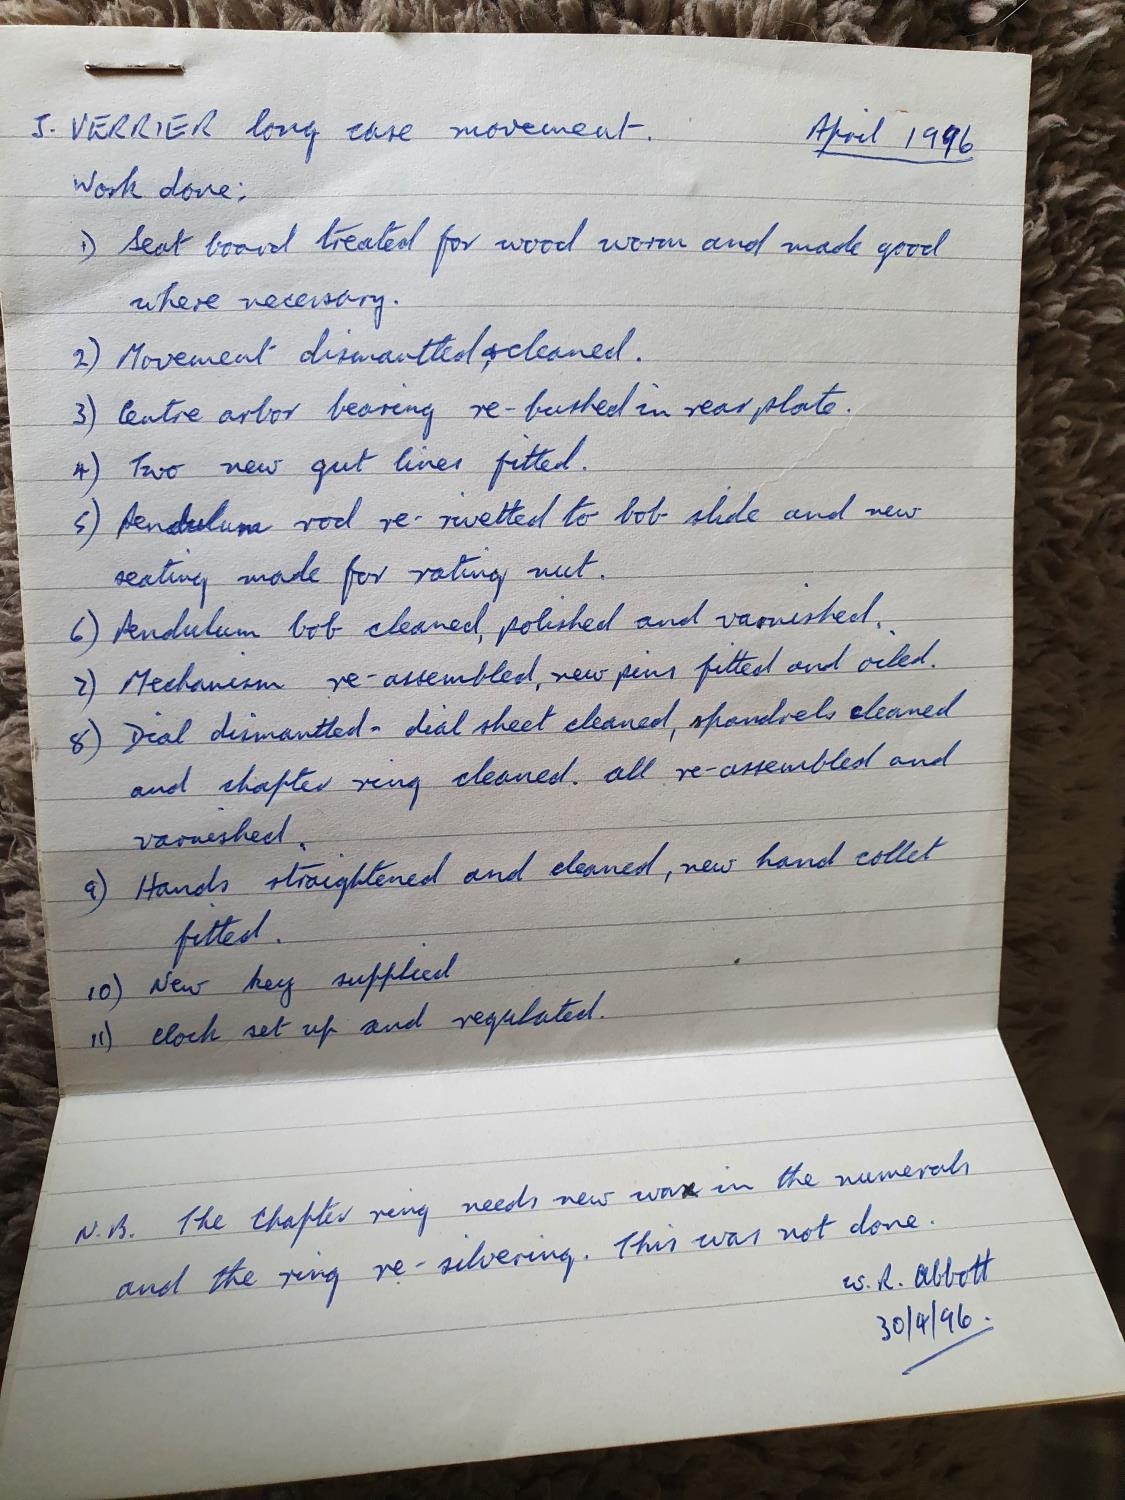 J. VERRIER long case movement. April 1996
Work done:
1) Seat board treated for wood worm and made good
where necessary.
2) Movement dismantled & cleaned.
3) Centre arbor bearing re-bushed in rear plate.
4) Two new gut lines fitted.
5) Pendulum rod re-rivetted to bob slide and new
seating made for rating nut.
6) Pendulum bob cleaned, polished and varnished.
7) Mechanism re-assembled, new pins fitted and oiled.
8) Dial dismantled - dial sheet cleaned, spandrels cleaned
and chapter ring cleaned. all re-assembled and
varnished.
9) Hands straightened and cleaned, new hand collet
fitted.
10) New key supplied
11) Clock set up and regulated.
N.B. The Chapter ring needs new wax in the numerals
and the ring re-silvering. This was not done.
W. R. Abbott
30/4/96.